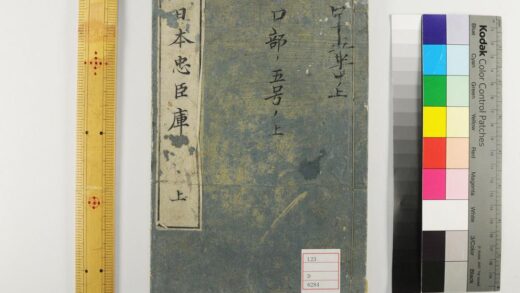 日本忠臣庫 上
口部ノ五号ノ上
123
D
6284
Kodak Color Control Patches
Blue
Cyan
Green
Yellow
Red
Magenta
White
3/Color
Black